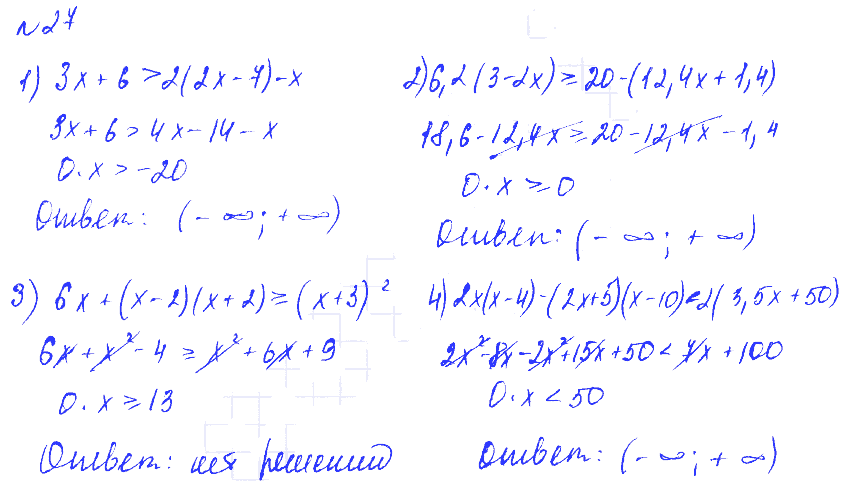 №27
1) 3x + 6 > 2(2x - 7) - x
3x + 6 > 4x - 14 - x
0·x > -20
Ответ: (-∞; +∞)
2) 6,2(3-2x) ≥ 20-(12,4x+1,4)
18,6 - 12,4x ≥ 20 - 12,4x - 1,4
0·x ≥ 0
Ответ: (-∞; +∞)
3) 6x + (x-2)(x+2) ≥ (x+3)²
6x + x² - 4 ≥ x² + 6x + 9
0·x ≥ 13
Ответ: нет решений
4) 2x(x-4) - (2x+5)(x-10) < 2(3,5x+50)
2x² - 8x - 2x² + 15x + 50 < 7x + 100
0·x < 50
Ответ: (-∞; +∞)